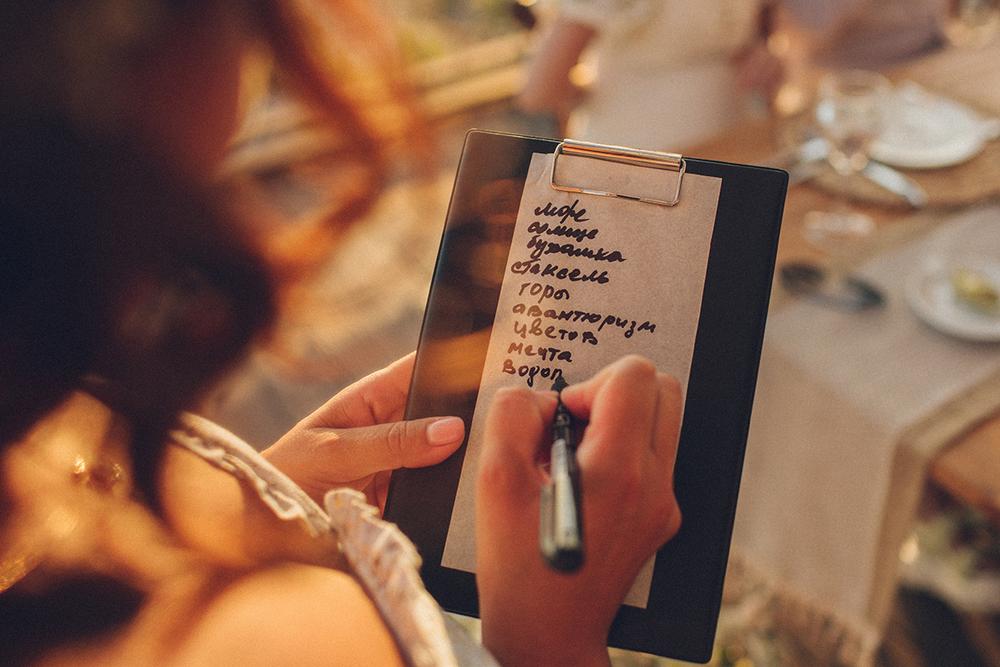 море
солнце
букашка
стаксель
горы
авантюризм
цветок
мечта
водоп